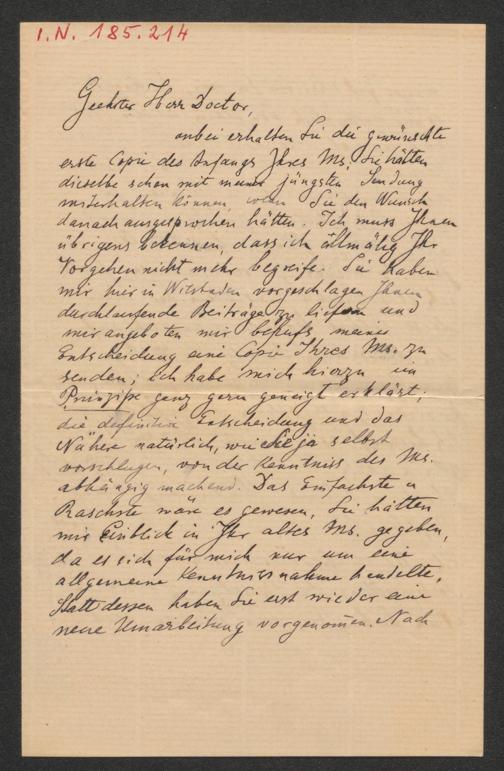 I.N. 185.214
Geehrter Herr Doctor,
anbei erhalten Sie die gewünschte
erste Copie des Anfangs Ihres Ms. Sie hätten
dieselbe schon mit meiner jüngsten Sendung
miterhalten können, wenn Sie den Wunsch
danach ausgesprochen hätten. Ich muss Ihnen
übrigens bekennen, dass ich allmälig Ihr
Vorgehen nicht mehr begreife. Sie haben
mir hier in Wiesbaden vorgeschlagen Ihnen
durchlaufende Beiträge zu liefern und
mir angeboten mir behufs meiner
Entscheidung eine Copie Ihres Ms. zu
senden; ich habe mich hierzu im
Prinzipe ganz gern geneigt erklärt,
die definitive Entscheidung und das
Nähere natürlich, wie Sie ja selbst
vorschlugen, von der Kenntniss des Ms.
abhängig machend. Das Einfachste u
Raschste wäre es gewesen, Sie hätten
mir Einblick in Ihr altes Ms. gegeben,
da es sich für mich nur um eine
allgemeine Kenntnissnahme handelte.
Statt dessen haben Sie erst wieder eine
neue Umarbeitung vorgenomen. Nach